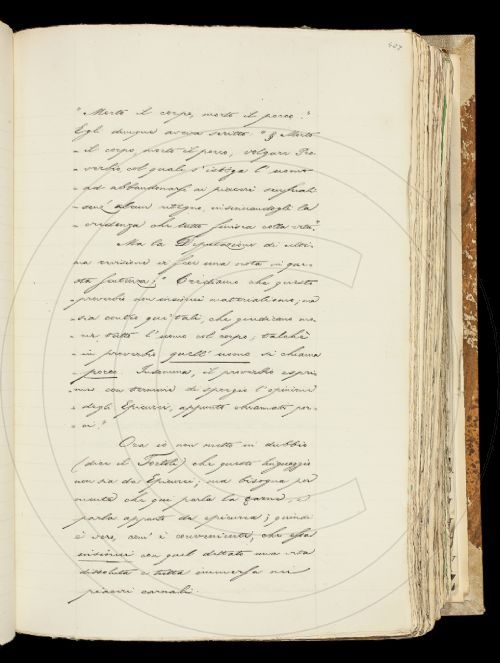 407
"Morto il corpo, morto il porco."
Egli dunque aveva scritto: "§ Morto
" il corpo, morto il porco, volgare Pro
" verbio col quale s'istiga l'uomo
" ad abbandonarsi ai piaceri sensuali
" senz'alcun ritegno, insinuandogli la
" credenza che tutto finisca colla vita."
Ma la Deputazione di ulti-
ma revisione ci fece una nota in que-
sta forma: "Crediamo che questo
" proverbio non insinui materialismo; ma
" sia contro que' tali, che giudicano mo-
" rir tutto l'uomo col corpo; talchè
" in proverbio quell' uomo si chiama
" porco. Insomma, il proverbio espri-
" me con termini di spregio l'opinione
" degli Epicurei, appunto chiamati por-
" ci."
Ora io non metto in dubbio
(dice il Tortoli) che questo linguaggio
non sia da Epicurei; ma bisogna por
mente che qui parla la carne, e
parla appunto da epicurea; quindi
è vero, com' è conveniente, che essa
insinui con quel dettato una vita
dissoluta e tutta immersa nei
piaceri carnali.